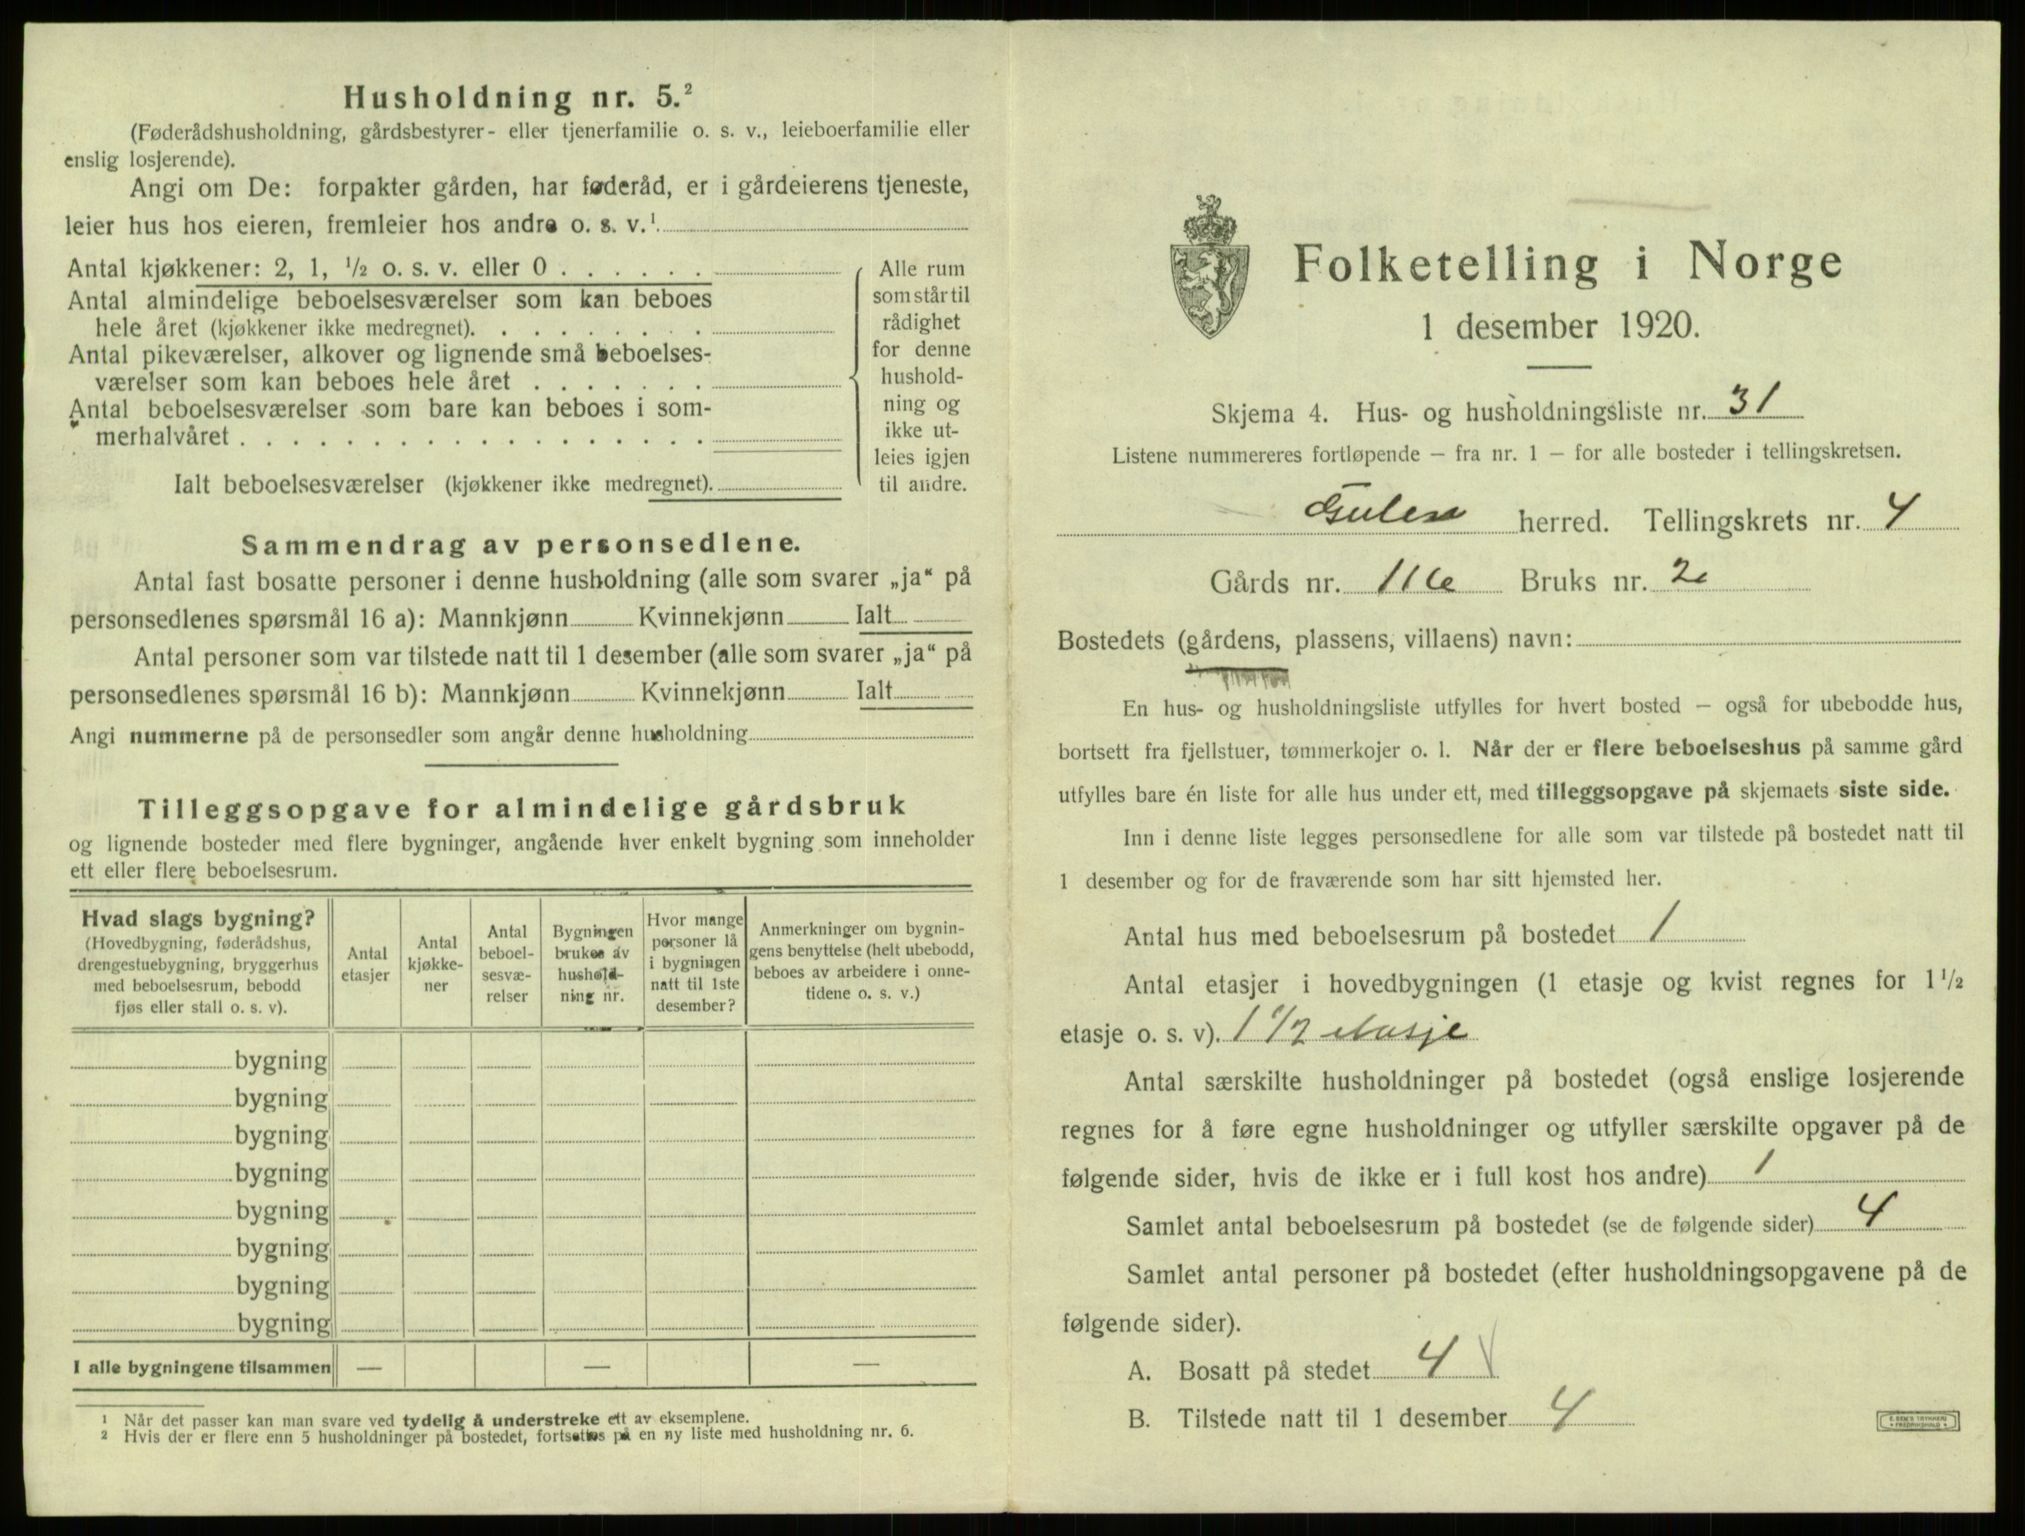 Husholdning nr. 5.²
(Føderådshusholdning, gårdsbestyrer- eller tjenerfamilie o. s. v., leieboerfamilie eller
enslig losjerende).
Angi om De: forpakter gården, har føderåd, er i gårdeierens tjeneste,
leier hus hos eieren, fremleier hos andre o. s. v.¹
Antal kjøkkener: 2, 1, ½ o. s. v. eller 0 . . . . . .
Antal almindelige beboelsesværelser som kan beboes
hele året (kjøkkener ikke medregnet). . . . . . . . .
Antal pikeværelser, alkover og lignende små beboelses-
værelser som kan beboes hele året . . . . . . .
Antal beboelsesværelser som bare kan beboes i som-
merhalvåret . . . . . . . . . . . . . . . . . .
Ialt beboelsesværelser (kjøkkener ikke medregnet).
Alle rum
som står til
rådighet
for denne
hushold-
ning og
ikke ut-
leies igjen
til andre.
Sammendrag av personsedlene.
Antal fast bosatte personer i denne husholdning (alle som svarer „ja“ på
personsedlenes spørsmål 16 a): Mannkjønn Kvinnekjønn Ialt
Antal personer som var tilstede natt til 1 desember (alle som svarer „ja“ på
personsedlenes spørsmål 16 b): Mannkjønn Kvinnekjønn Ialt
Angi nummerne på de personsedler som angår denne husholdning
Tilleggsopgave for almindelige gårdsbruk
og lignende bosteder med flere bygninger, angående hver enkelt bygning som inneholder
ett eller flere beboelsesrum.
Hvad slags bygning?
(Hovedbygning, føderådshus,
drengestuebygning, bryggerhus
med beboelsesrum, bebodd
fjøs eller stall o. s. v).
Antal
etasjer
Antal
kjøkke-
ner
Antal
beboel-
sesvæ-
relser
Bygningen
brukes av
hushold-
ning nr.
Hvor mange
personer lå
i bygningen
natt til 1ste
desember?
Anmerkninger om bygnin-
gens benyttelse (helt ubebodd,
beboes av arbeidere i onne-
tidene o. s. v.)
bygning
bygning
bygning
bygning
bygning
bygning
bygning
bygning
I alle bygningene tilsammen — — —
¹ Når det passer kan man svare ved tydelig å understreke ett av eksemplene.
² Hvis der er flere enn 5 husholdninger på bostedet, fortsettes på en ny liste med husholdning nr. 6.
Folketelling i Norge
1 desember 1920.
Skjema 4. Hus- og husholdningsliste nr. 31
Listene nummereres fortløpende — fra nr. 1 — for alle bosteder i tellingskretsen.
Gulen herred. Tellingskrets nr. 4
Gårds nr. 116 Bruks nr. 2
Bostedets (gårdens, plassens, villaens) navn:
En hus- og husholdningsliste utfylles for hvert bosted — også for ubebodde hus,
bortsett fra fjellstuer, tømmerkojer o. l. Når der er flere beboelseshus på samme gård
utfylles bare én liste for alle hus under ett, med tilleggsopgave på skjemaets siste side.
Inn i denne liste legges personsedlene for alle som var tilstede på bostedet natt til
1 desember og for de fraværende som har sitt hjemsted her.
Antal hus med beboelsesrum på bostedet 1
Antal etasjer i hovedbygningen (1 etasje og kvist regnes for 1½
etasje o. s. v). 1 1/2 etasje
Antal særskilte husholdninger på bostedet (også enslige losjerende
regnes for å føre egne husholdninger og utfyller særskilte opgaver på de
følgende sider, hvis de ikke er i full kost hos andre) 1
Samlet antal beboelsesrum på bostedet (se de følgende sider) 4
Samlet antal personer på bostedet (efter husholdningsopgavene på de
følgende sider).
A. Bosatt på stedet 4 √
B. Tilstede natt til 1 desember 4